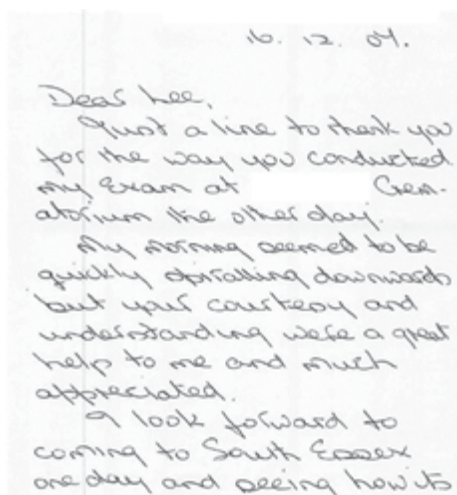 16. 12. 04.
Dear Lee,
Just a line to thank you
for the way you conducted
my Exam at Crem-
atorium the other day.
My morning seemed to be
quickly spiralling downwards
but your courtesy and
understanding were a great
help to me and much
appreciated.
I look forward to
coming to South Essex
one day and seeing how its